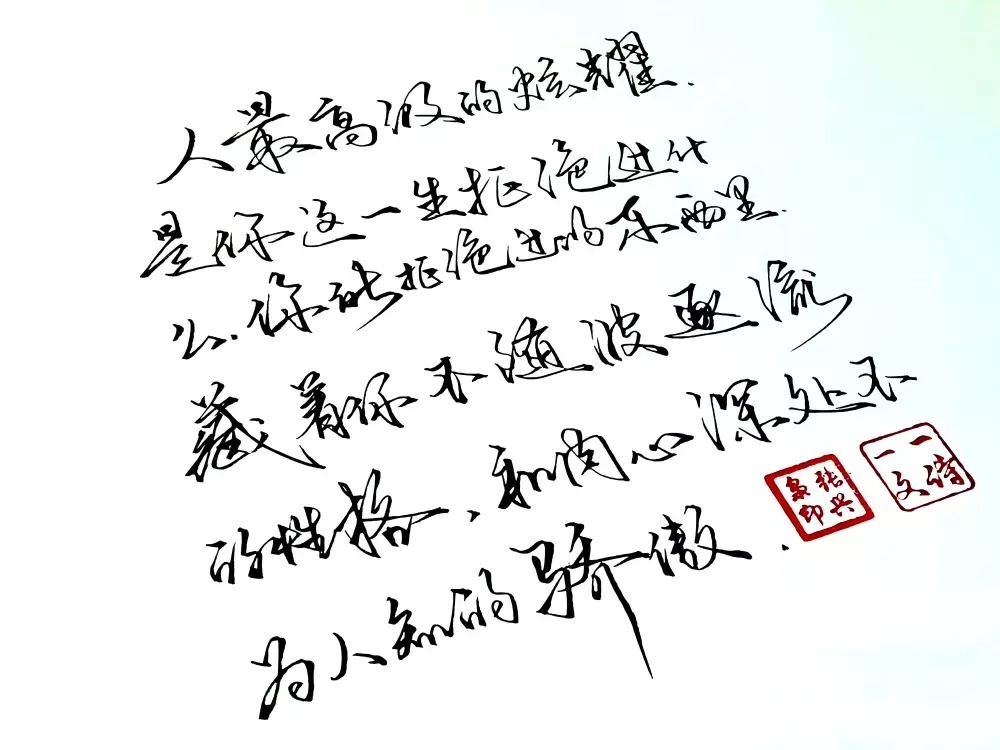 人最高级的炫耀.
是你这一生拒绝过什
么.你所拒绝过的东西里.
藏着你不随波逐流
的性格、和内心深处不
为人知的骄傲.
一诗
一文